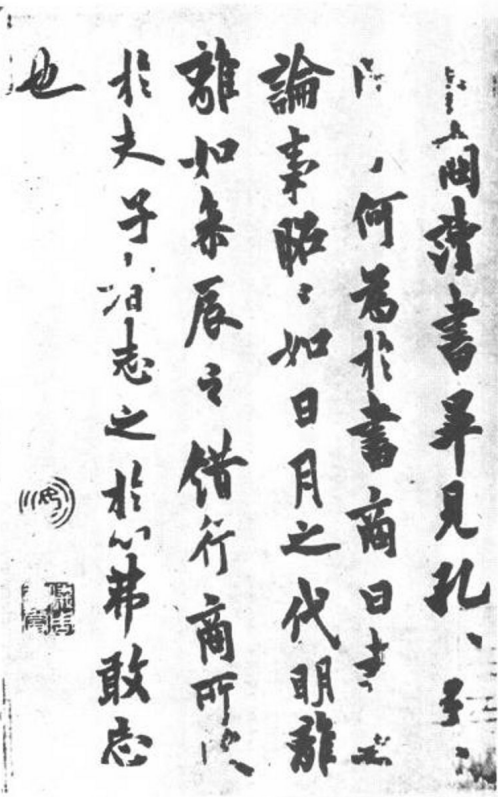 商讀書畢見孔〻子〻
何為於書商曰書之
論事昭〻如日月之代明離
離如參辰之錯行商所受
於夫子志之於心弗敢忘
也